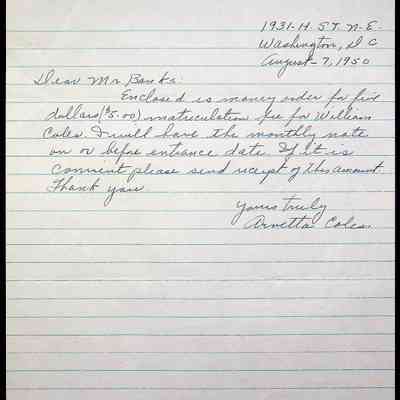 1931-H. ST. N-E.
Washington, D C
August-7, 1950
Dear Mr Banks:
Enclosed is money order for five
dollars ($5.00) matriculation fee for William
Coles. I will have the monthly note
on or before entrance date. If it is
convient please send receipt of this amount.
Thank you.
Yours truly
Arnetta Coles.